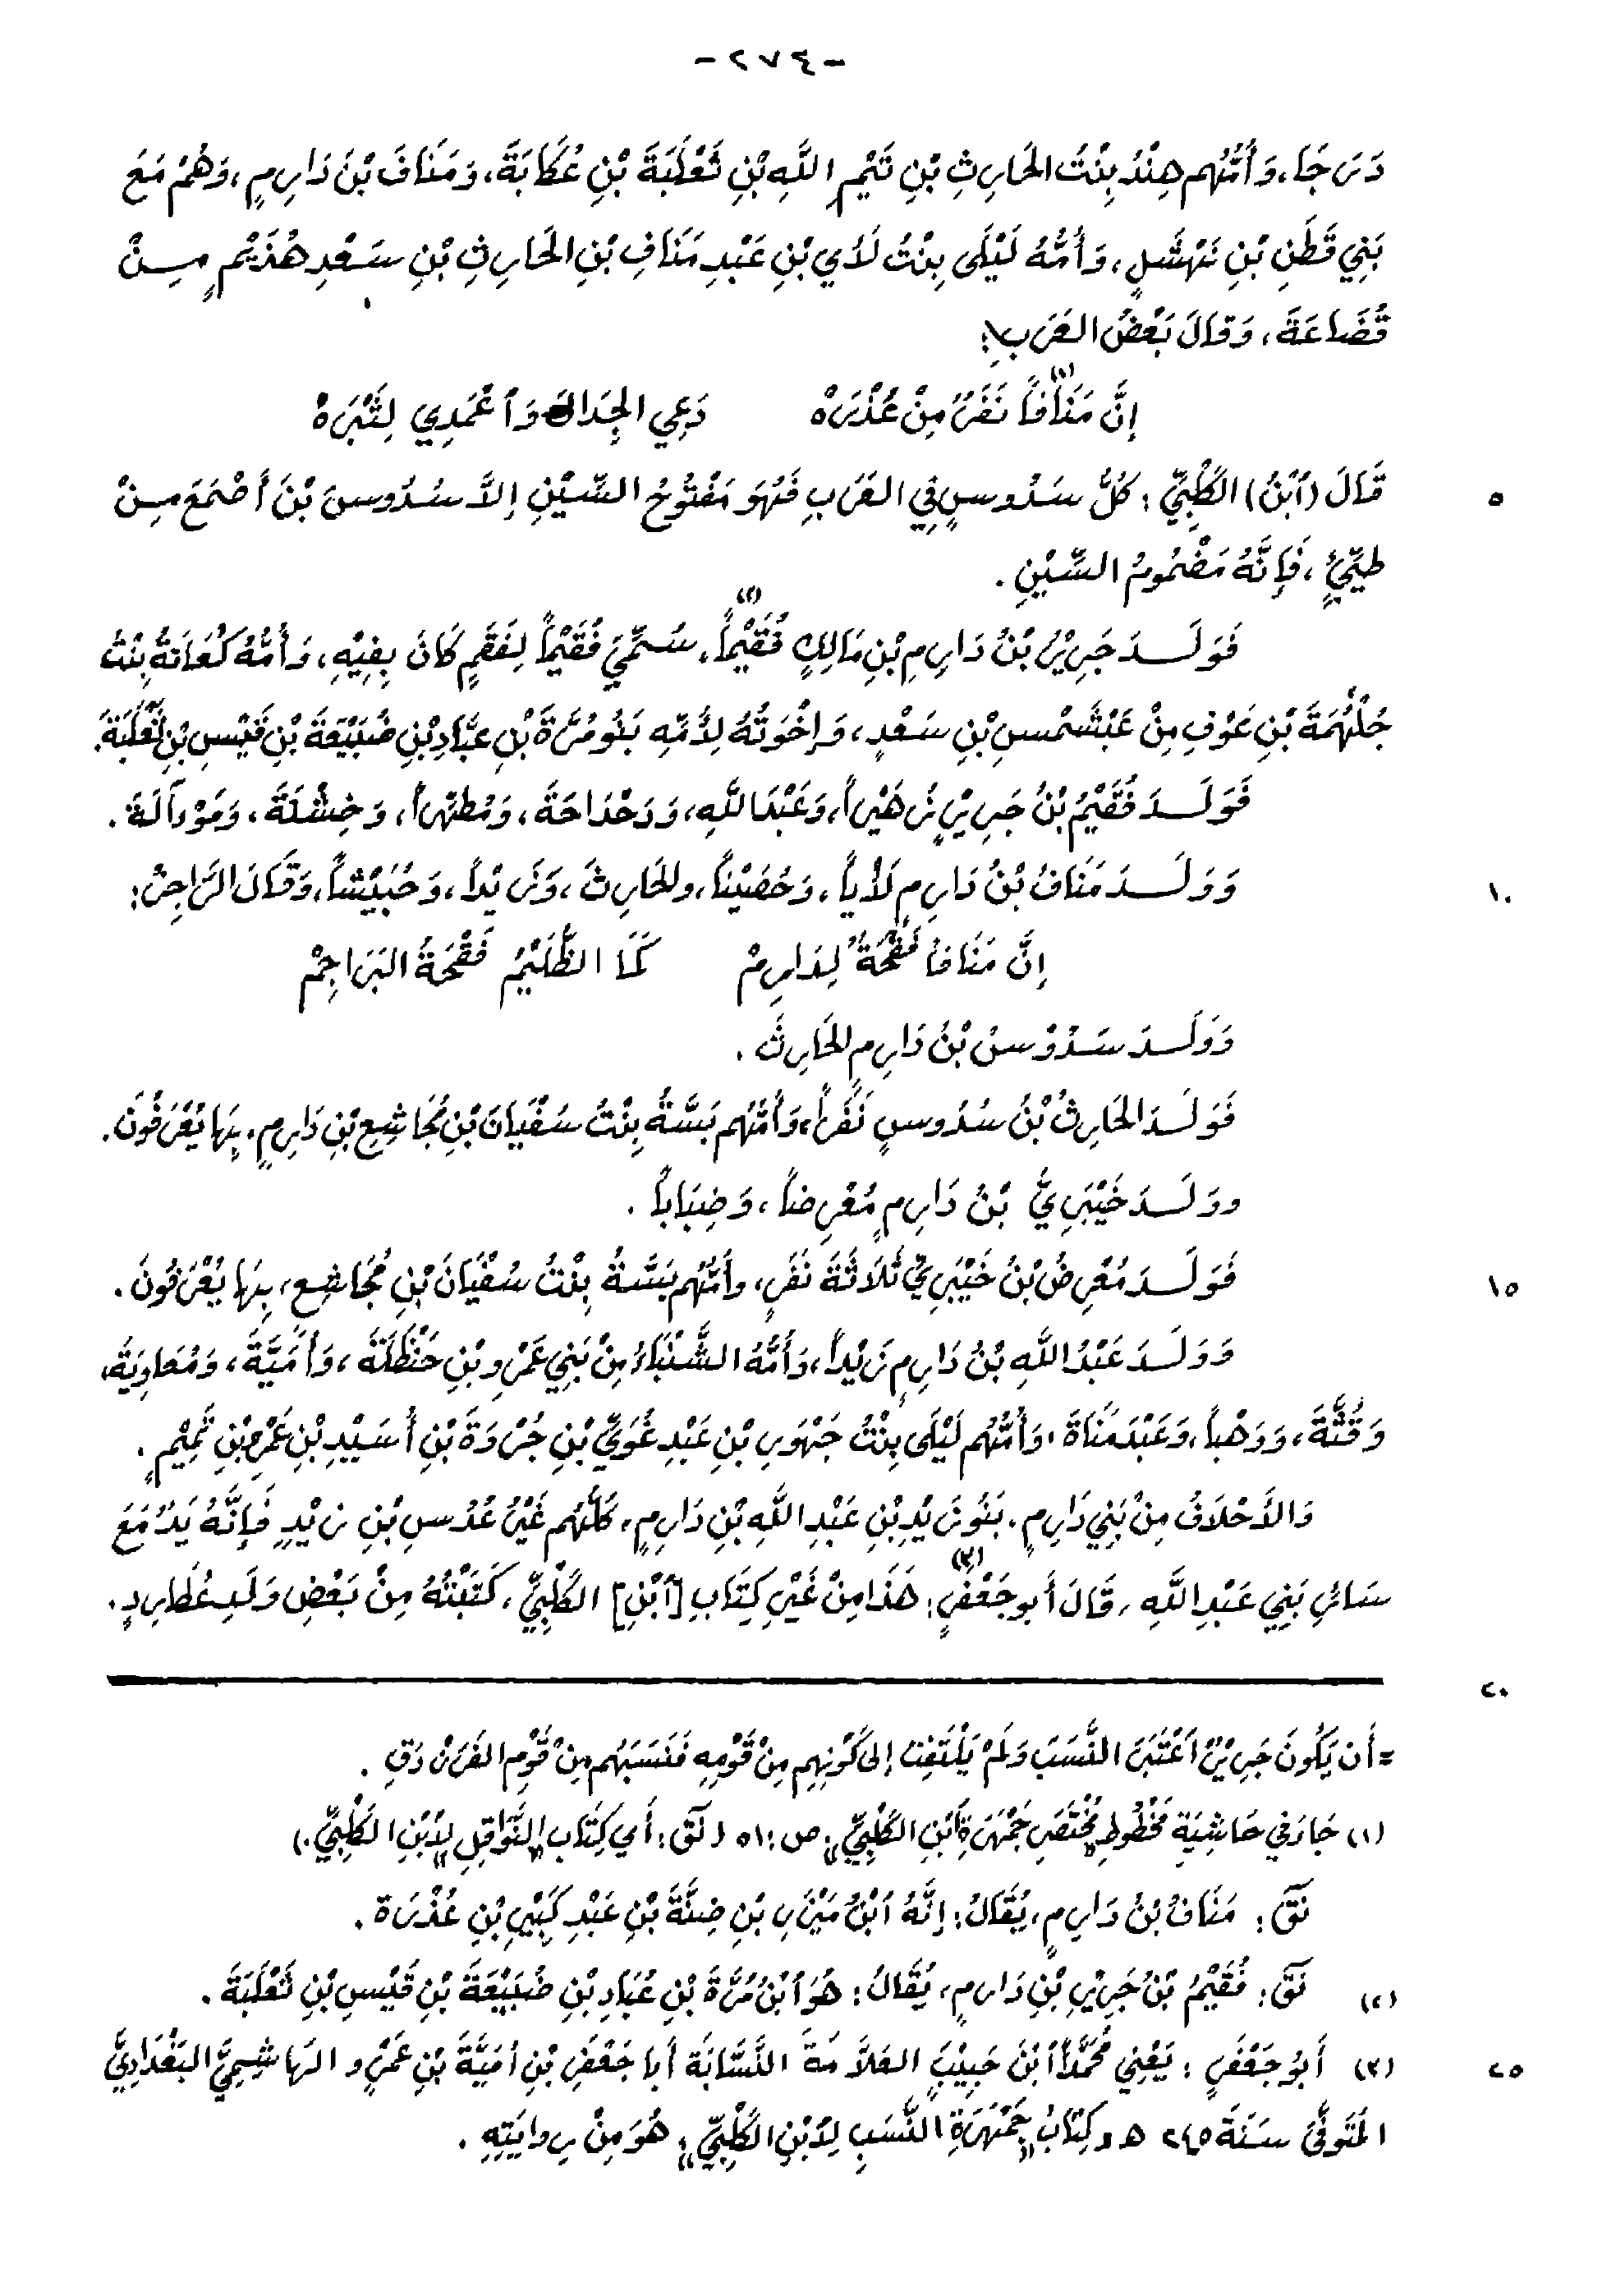 -٢٧٤-
دَرَجَا، وَأُمُّهُم هِنْدُ بِنْتُ الحَارِثِ بْنِ تَيْمِ اللَّهِ بْنِ ثَعْلَبَةَ بْنِ عُكَابَةَ، وَمَنَافَ بْنَ دَارِمٍ، وَهُمْ مَعَ
بَنِي قَطَنِ بْنِ نَهْشَلٍ، وَأُمُّهُ لَيْلَى بِنْتُ لَأْيِ بْنِ عَبْدِ مَنَافِ بْنِ الحَارِثِ بْنِ سَعْدِ هُذَيْمٍ مِنْ
قُضَاعَةَ، وَقالَ بَعْضُ العَرَبِ:
إِنَّ مَنَافاً(١) نَفَرٌ مِنْ عُذْرَهْ دَعِي الجِدَالَ وَآعْمَدِي لِثَبْرَهْ
قَالَ (آبْنُ) الكَلْبِيِّ: كُلُّ سَدُوسٍ فِي العَرَبِ فَهُوَ مَفْتُوحُ السِّيْنِ إلاَّ سُدُوسَ بْنَ أَصْمَعَ مِنْ
٥
طيِّئٍ، فَإِنَّهُ مَضْمُومُ السِّيْنِ.
فَوَلَدَ جَرِيْرُ بْنُ دَارِمِ بْنِ مَالِكٍ فُقَيْماً(٢)، سُمِّيَ فُقَيْماً لِفَقَمٍ كَانَ بِفِيْهِ، وَأُمُّهُ بِنْتُ
جُلْهُمَةَ بْنِ عَوْفِ مِنْ عَبْشَمْسِ بْنِ سَعْدٍ، وَإِخْوَتُهُ لِأُمِّهِ بَنُو مُرَّةَ بْنِ عَبَّادِ بْنِ ضُبَيْعَةَ بْنِ قَيْسِ بْنِ ثَعْلَبَةَ.
فَوَلَدَ فُقَيْمُ بْنُ جَرِيْرٍ زُهَيْراً، وَعَبْدَ اللَّهِ، وَدَحْدَاحَةَ، وَمُطَهَّراً، وَخِشْلَةَ، وَمَوْأَلَةَ.
وَوَلَدَ مَنَافُ بْنُ دَارِمٍ لَأْياً، وَحُصَيْناً، والحَارِثَ، وَزَيْداً، وَحُبَيْشاً، وَقَالَ الرَّاجِزُ:
١٠
إِنَّ مَنَافاً فَقْحَةٌ لِدَارِمْ كَمَا الظَّلِيْمُ فَقْحَةُ البَرَاجِمْ
وَوَلَدَ سَدُوْسُ بْنُ دَارِمٍ الحَارِثَ.
فَوَلَدَ الحَارِثُ بْنُ سُدُوسٍ نَفَراً، وَأُمُّهُم بَسَّةُ بِنْتُ سُفْيَانَ بْنِ مُجَاشِعِ بْنِ دَارِمٍ، بِهَا يُعْرَفُونَ.
وولَدَ خَيْبَرِيُّ بْنُ دَارِمٍ مُعْرِضاً، وَضِبَاباً.
فَوَلَدَ مُعْرِضُ بْنُ خَيْبَرِيٍّ ثَلَاثَةَ نَفَرٍ، وأُمُّهُم بَسَّةُ بِنْتُ سُفْيَانَ بْنِ مُجَاشِعٍ، بِهَا يُعْرَفُونَ.
١٥
وَوَلَدَ عَبْدُ اللَّهِ بْنُ دَارِمٍ زَيْداً، وَأُمُّهُ الشَّنْبَاءُ مِنْ بَنِي عَمْرِو بْنِ حَنْظَلَةَ، وَأُمَيَّةَ، وَمُعَاوِيَةَ،
وَقُنَّةَ، وَوَهْباً، وَعَبْدَ مَنَاةَ، وَأُمُّهُم لَيْلَى بِنْتُ جَهْوَرِ بْنِ عَبْدِ غُوَيِّ بْنِ جُرْوَةَ بْنِ أُسَيِّدِ بْنِ عَمْرِو بْنِ تَمِيْمٍ.
وَالأَحْلَافُ مِنْ بَنِي دَارِمٍ. بَنُو زَيْدِ بْنِ عَبْدِ اللَّهِ بْنِ دَارِمٍ، كُلُّهُم غَيْرُ عُدُسِ بْنِ زَيْدٍ فَإِنَّهُ يَدٌ مَعَ
سَائِرِ بَنِي عَبْدِ اللَّهِ، قَالَ أَبو جَعْفَرٍ(٣): هَذَا مِنْ غَيْرِ كِتَابِ [آبْنِ] الكَلْبِيِّ، كَتَبْتُهُ مِنْ بَعْضِ وَلَدِ عُطَارِدٍ.
٢٠
= أَن يَكُونَ جَرِيْرٌ آعْتَبَرَ النَّسَبَ وَلَمْ يَلْتَفِتْ إلى كَوْنِهِم مِنْ قَوْمِهِ فَنَسَبَهُم مِنْ قَوْمِ الفَرَزْدَقِ.
(١) جَاءَ في حَاشِيَةِ مَخْطُوطِ «مُخْتَصَرِ جَمْهَرَةِ آبْنِ الكَلْبِيِّ» ص: ٥١ (نَقَ: أَي كِتَاب «النَّوَاقِلِ» لِآبْنِ الكَلْبِيِّ.)
نَقَ: مَنَافُ بْنُ دَارِمٍ، يُقَالُ: إِنَّهُ آبْنُ مَيْزَرِ بْنِ ضِنَّةَ بْنِ عَبْدِ كَبِيْرِ بْنِ عُذْرَة.
(٢) نَقَ: فُقَيْمُ بْنُ جَرِيْرِ بْنِ دَارِمٍ، يُقَالُ: هُوَ آبْنُ مُرَّةَ بْنِ عُبَادِ بْنِ ضُبَيْعَةَ بْنِ قَيْسِ بْنِ ثَعْلَبَةَ.
(٣) أَبُو جَعْفَرٍ: يَعْنِي مُحَمَّدَ آبْنَ حَبِيْبَ العَلاَّمَةَ النَّسَّابَةَ أَبا جَعْفَرِ بْنِ أُمَيَّةَ بْنِ عَمْرٍو الهَاشِمِيَّ البَغْدَادِيَّ
٢٥
المُتَوفَّى سَنَةَ ٢٤٥ هـ وكِتَابُ «جَمْهَرَةِ النَّسَبِ لِآبْنِ الكَلْبِيِّ» هُوَ مِنْ رِوايَتِهِ.